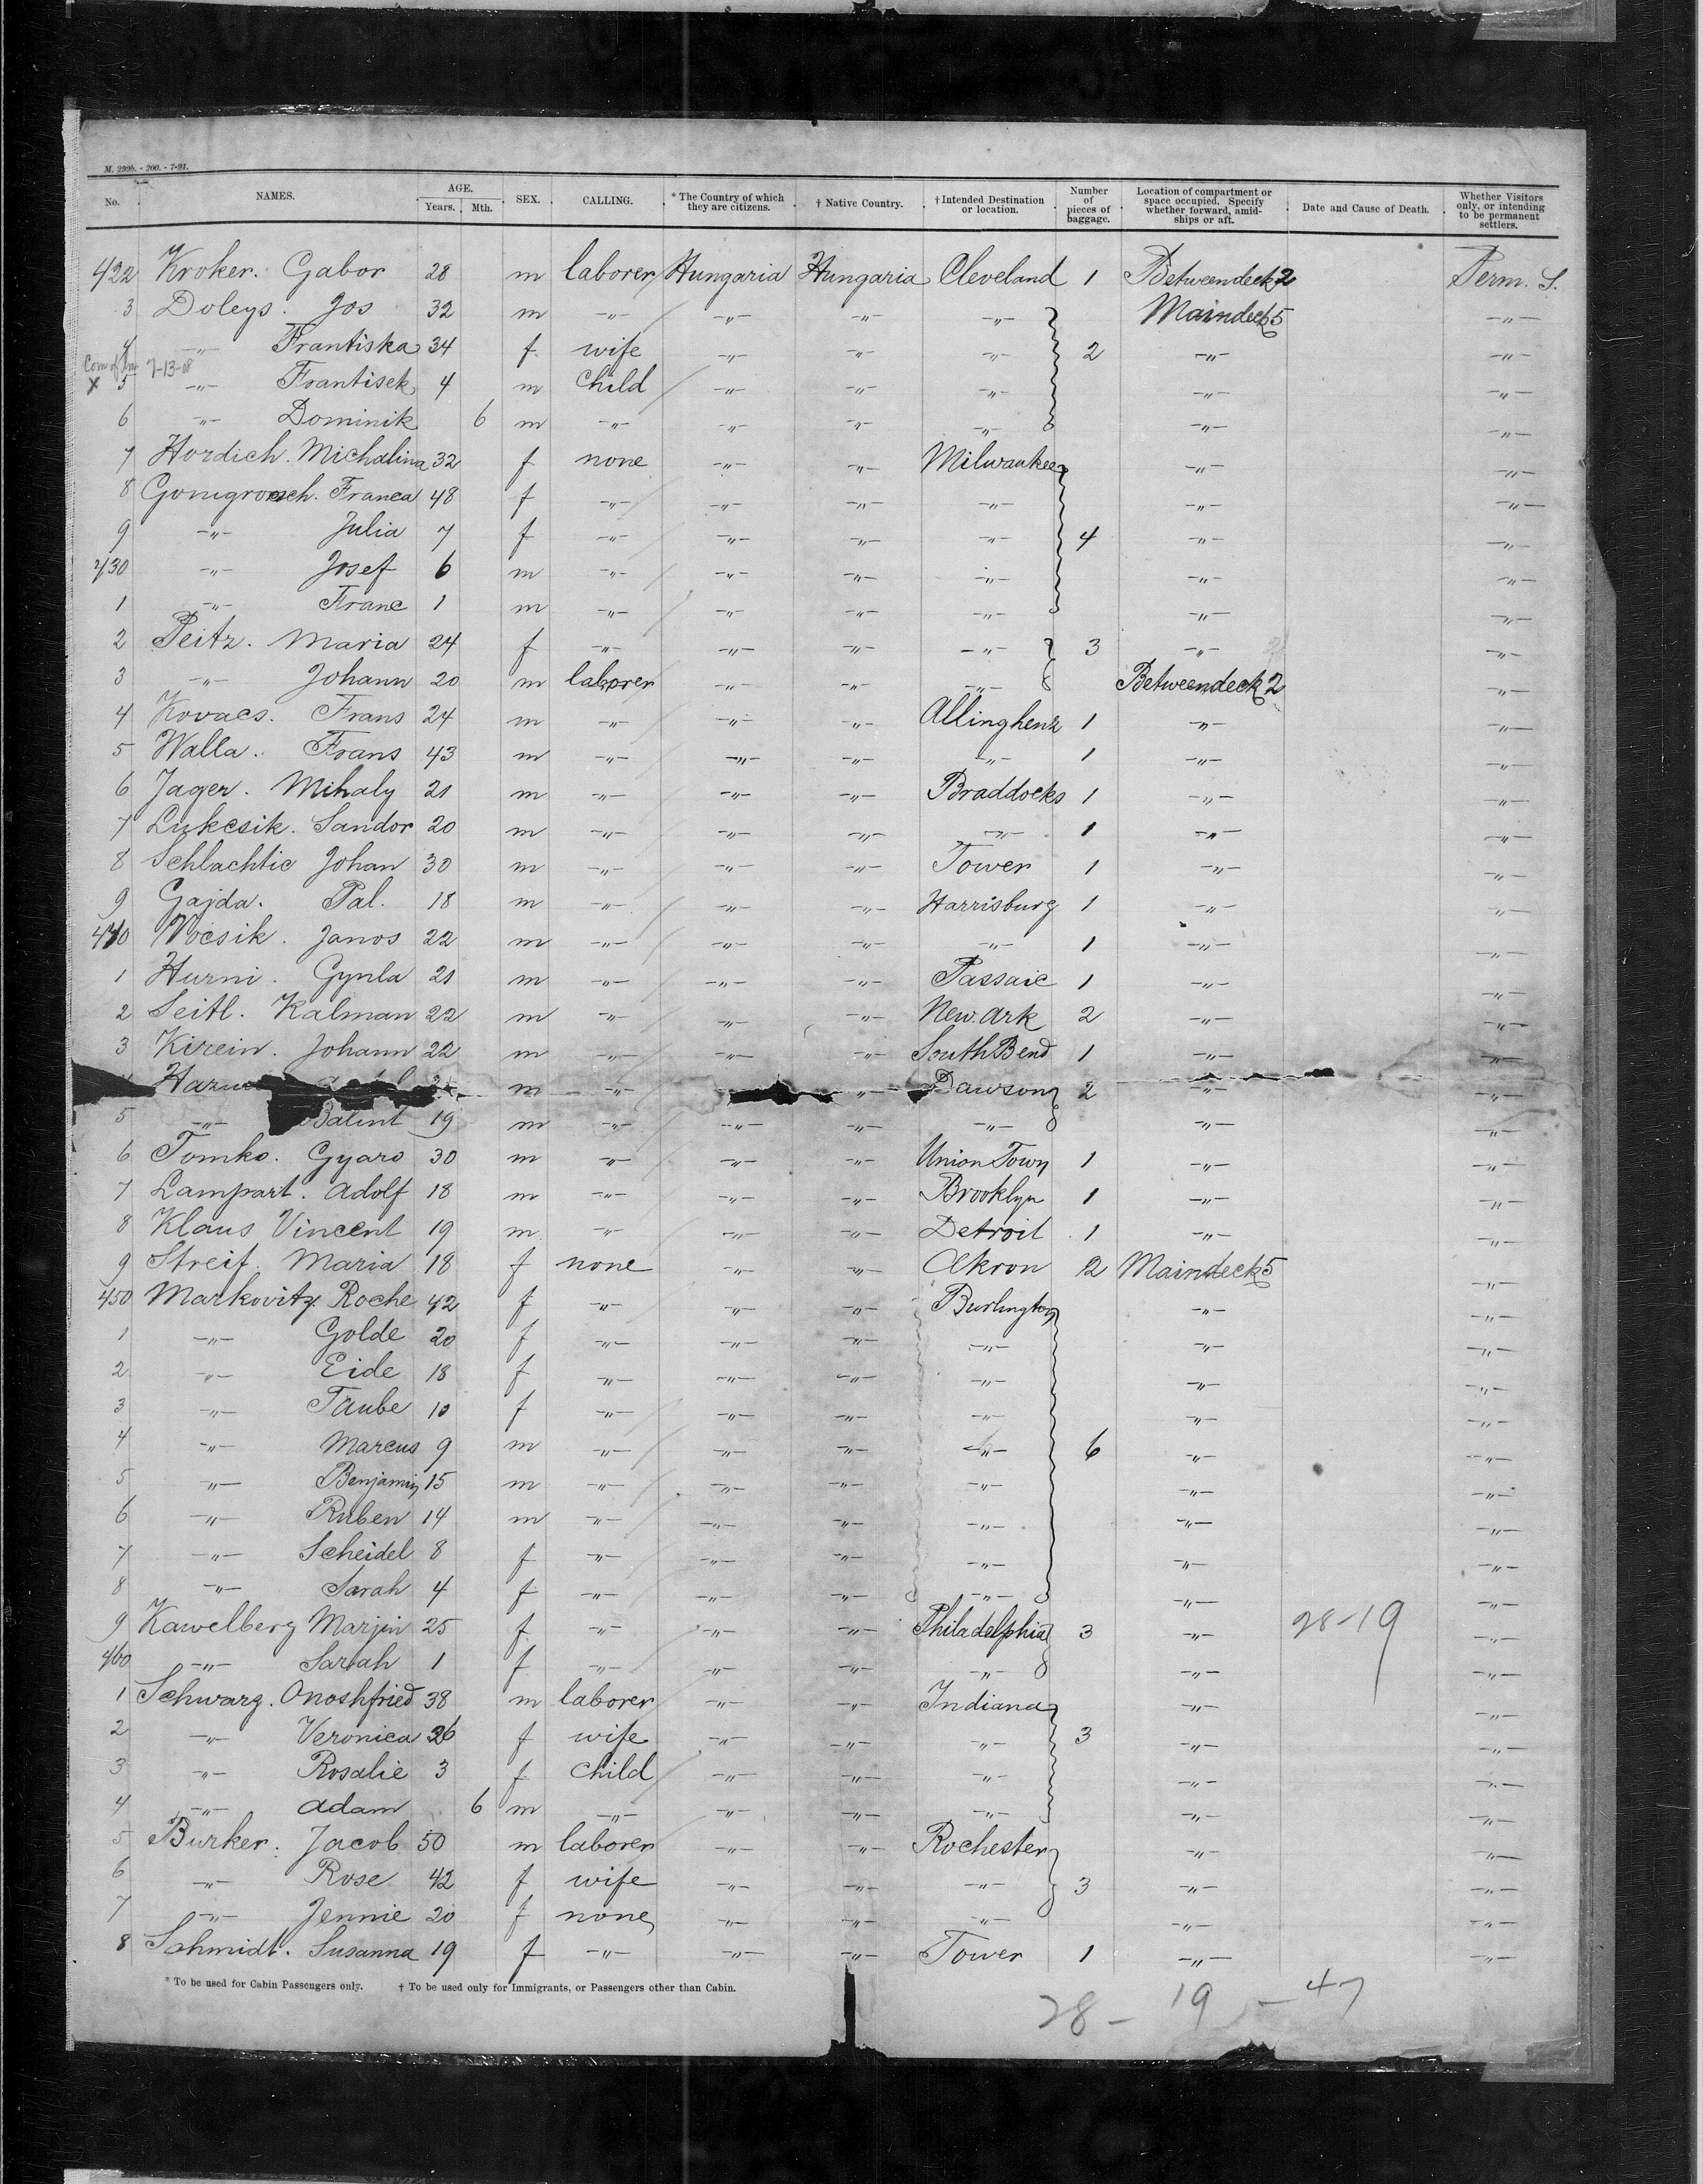 M. 299b. - 200. - 7-91.
No. NAMES. AGE. Years. Mth. SEX. CALLING. * The Country of which they are citizens. † Native Country. † Intended Destination or location. Number of pieces of baggage. Location of compartment or space occupied. Specify whether forward, amidships or aft. Date and Cause of Death. Whether Visitors only, or intending to be permanent settlers.
422 Kroker. Gabor 28 m laborer Hungaria Hungaria Cleveland 1 Betweendeck 2 Perm. S.
3 Doleys. Jos 32 m -"- -"- -"- -"- Maindeck 5 -"-
4 -"- Frantiska 34 f. wife -"- -"- -"- 2 -"- -"-
7-13-08
x 5 -"- Frantisek 4 m Child -"- -"- -"- -"- -"-
6 -"- Dominik 6 m -"- -"- -"- -"- -"- -"-
7 Hordich. Michalina 32 f none -"- -"- Milwaukee -"- -"-
8 Franca 48 f -"- -"- -"- -"- -"- -"-
9 -"- Julia 7 f -"- -"- -"- -"- 4 -"- -"-
430 -"- Josef 6 m -"- -"- -"- -"- -"- -"-
1 -"- Franc 1 m -"- -"- -"- -"- -"- -"-
2 Peitz. Maria 24 f -"- -"- -"- -"- 3 -"- -"-
3 -"- Johann 20 m laborer -"- -"- -"- Betweendeck 2 -"-
4 Kovacs. Frans 24 m -"- -"- -"- Allinghenz 1 -"- -"-
5 Walla. Frans 43 m -"- -"- -"- -"- 1 -"- -"-
6 Jager. Mihaly 21 m -"- -"- -"- Braddocks 1 -"- -"-
7 Lukcsik. Sandor 20 m -"- -"- -"- -"- 1 -"- -"-
8 Schlachtic Johan 30 m -"- -"- -"- Tower 1 -"- -"-
9 Gajda. Pal. 18 m -"- -"- -"- Harrisburg 1 -"- -"-
440 Wocsik. Janos 22 m -"- -"- -"- -"- 1 -"- -"-
1 Hurni. Gynla 21 m -"- -"- -"- Passaic 1 -"- -"-
2 Seitl. Kalman 22 m -"- -"- -"- New.ark 2 -"- -"-
3 Kirein. Johann 22 m -"- -"- -"- South Bend 1 -"- -"-
m -"- -"- Dawson 2 -"- -"-
5 -"- Balint 19 m -"- -"- -"- -"- -"- -"-
6 Tomko. Gyaro 30 m -"- -"- -"- Union Town 1 -"- -"-
7 Lampart. Adolf 18 m -"- -"- -"- Brooklyn 1 -"- -"-
8 Klaus Vincent 19 m. -"- -"- -"- Detroit 1 -"- -"-
9 Streif. Maria 18 f none -"- -"- Akron 2 Maindeck 5 -"-
450 Markovitz. Roche 42 f -"- -"- -"- Burlington -"- -"-
1 -"- Golde 20 f -"- -"- -"- -"- -"- -"-
2 -"- Eide 18 f -"- -"- -"- -"- -"- -"-
3 -"- Taube 10 f -"- -"- -"- -"- -"- -"-
4 -"- Marcus 9 m -"- -"- -"- -"- 6 -"- -"-
5 -"- Benjamin 15 m -"- -"- -"- -"- -"- -"-
6 -"- Ruben 14 m -"- -"- -"- -"- -"- -"-
7 -"- Scheidel 8 f -"- -"- -"- -"- -"- -"-
8 -"- Sarah 4 f -"- -"- -"- -"- -"- -"-
9 Kawelberg Marjin 25 f -"- -"- -"- Philadelphia 3 -"- 28-19 -"-
460 -"- Sarah 1 f -"- -"- -"- -"- -"- -"-
1 Schwarz. Onoshfried 38 m laborer -"- -"- Indiana -"- -"-
2 -"- Veronica 26 f wife -"- -"- -"- 3 -"- -"-
3 -"- Rosalie 3 f Child -"- -"- -"- -"- -"-
4 -"- Adam 6 m -"- -"- -"- -"- -"- -"-
5 Burker. Jacob 50 m laborer -"- -"- Rochester -"- -"-
6 -"- Rose 42 f wife -"- -"- -"- 3 -"- -"-
7 -"- Jennie 20 f none -"- -"- -"- -"- -"-
8 Schmidt. Susanna 19 f -"- -"- -"- Tower 1 -"- -"-
* To be used for Cabin Passengers only. † To be used only for Immigrants, or Passengers other than Cabin.
28 - 19 - 47